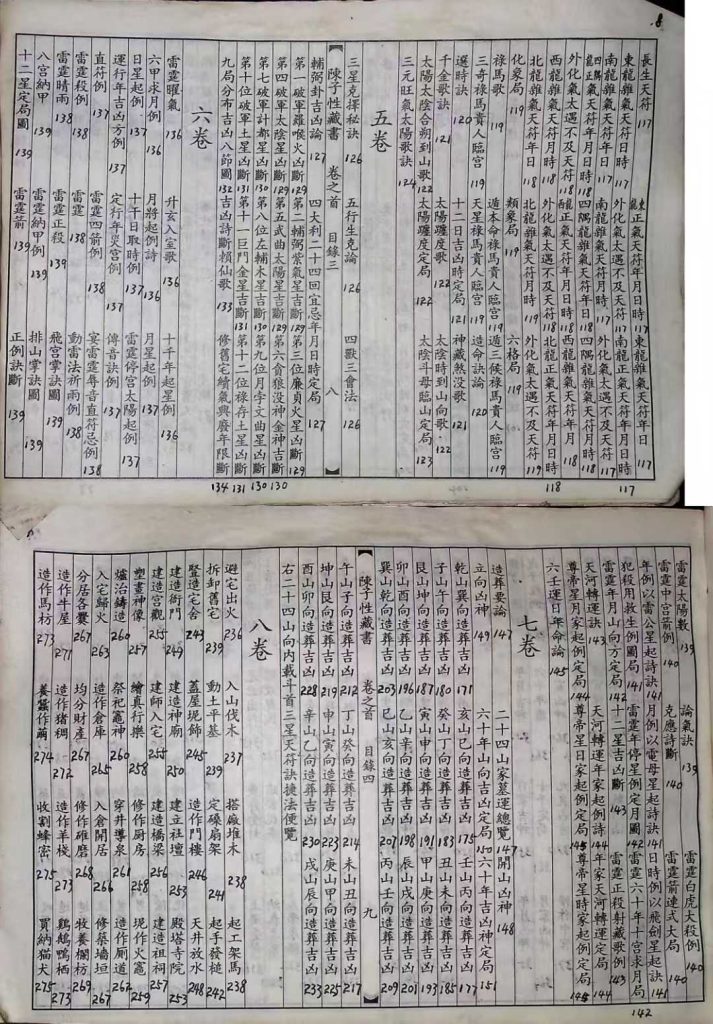 8
長生天符 117 東龍正氣天符年月日時 117 東龍雜氣天符年日 117
東龍雜氣天符日時 117 外化氣太過不及天符 117 南龍正氣天符年月日時 117
南龍雜氣天符年日 117 南龍雜氣天符日時 117 外化氣太過不及天符 117
四隅龍正氣天符年月日時 117 四隅龍雜氣天符年月 118 四隅龍雜氣天符日時
外化氣太過不及天符 118 西龍正氣天符年月日時 118 西龍雜氣天符年月 118
西龍雜氣天符日時 118 外化氣太過不及天符 118 北龍正氣天符年月日時 118
北龍雜氣天符年月 118 北龍雜氣天符月時 119 外化氣太過不及天符 119
化象局 119 類象局 119 六格局 119
祿馬歌 119 遁本命祿馬貴人臨宮 119 遁三候祿馬貴人臨宮 119
三奇祿馬貴人臨宮 119 天星祿馬貴人臨宮 119 造命訣論 120
選時訣 120 十二日吉凶時定局 121 神藏煞沒歌 121
千金歌訣 121 太陽躔度歌 122 太陽到山到時歌 122
太陽太陰合朔到山歌 122 太陽躔度定局 122 太陰斗母臨山定局 123
三元旺氣太陽歌訣 124
五卷
三星克擇秘訣 126 五行生克論 126 四獸三會法 126
輔弼卦吉凶論 127 四大利二十四回宜忌年月日時定局 127
陳子性藏書 卷之首 目錄三 八
第一破軍羅喉火凶斷 129 第二輔弼紫氣星吉斷 129 第三位廉貞火星凶斷 129
第四破軍太陰星凶斷 129 第五武曲太陽星吉斷 129 第六貪狼没神金神吉斷
第七破軍計都星凶斷 130 第八位左輔木星吉斷 130 第九位月孛文曲星凶斷 130
第十位破軍土星凶斷 131 第十一巨門金星吉斷 131 第十二位祿存土星凶斷 131
九局分布吉凶八節圖 132 吉凶詩斷賴仙歌 133 修舊宅續氣興廢年限斷 134
六卷
雷霆曜氣 136 升玄入室歌 136 十千年起星例 136
六甲求月例 136 月將起例詩 136 月星起例 137
日星起例 137 十干日取時例 137 雷霆停宮太陽起例 137
運行年吉凶方例 137 定行年災宮例 137 傳音訣例 137
直符例 138 雷霆四箭例 138 宴雷霆辱音直符忌例 138
雷霆殺例 138 雷霆 138 動雷法祈雨例 138
雷霆晴雨 138 雷霆正殺 139 飛宮掌訣圖 139
八宮納甲 139 雷霆納甲例 139 排山掌訣圖 139
十二星定局圖 139 雷霆箭 139 正例訣斷 139
134 131 130 130 118 117
雷霆太陽數 139 論氣訣 139 雷霆白虎大殺例 140
雷霆中宮箭例 140 克應詩斷 140 雷霆箭連式大局 140
年例以雷公星起詩訣 141 月例以電母星起詩訣 141 日時例以飛劍星起訣 141
犯殺用救生例圖局 141 雷霆年停星例定月圖 142 雷霆六十年十宮求月局 142
雷霆年月山向方定局 142 十二星吉凶斷 143 雷霆正殺射藏歌例 143
天河轉運訣 143 天河轉運年家起例詩 144 年家天河轉運定局 144
尊帝星月家起例定局 144 尊帝星日家起例定局 145 尊帝星時家起例定局 145
六壬運日年命論 145
七卷
造葬要論 二十四山家墓運總覽 147 開山凶神 148
立向凶神 149 六十年山向吉凶定局 150 六十年吉凶神定局 151
乾山巽向造葬吉凶 171 亥山巳向造葬吉凶 175 壬山丙向造葬吉凶 177
子山午向造葬吉凶 180 癸山丁向造葬吉凶 183 丑山未向造葬吉凶 185
艮山坤向造葬吉凶 187 寅山申向造葬吉凶 191 甲山庚向造葬吉凶 193
卯山酉向造葬吉凶 196 乙山辛向造葬吉凶 198 辰山戌向造葬吉凶 201
巽山乾向造葬吉凶 203 巳山亥向造葬吉凶 207 丙山壬向造葬吉凶 209
陳子性藏書 卷之首 目錄四 九
午山子向造葬吉凶 212 丁山癸向造葬吉凶 214 未山丑向造葬吉凶 217
坤山艮向造葬吉凶 219 申山寅向造葬吉凶 223 庚山甲向造葬吉凶 225
酉山卯向造葬吉凶 228 辛山乙向造葬吉凶 230 戌山辰向造葬吉凶 233
右二十四山向內載斗首三星天符訣捷法便覽
八卷
避宅出火 236 入山伐木 237 搭廠堆木 238 起工架馬 238
拆卸舊宅 239 動土平基 239 定磉扇架 241 起手發槌 242
豎造宅舍 243 蓋屋埿飾 245 造作門樓 246 天井放水 248
建造衙門 249 建造神廟 250 建立社壇 253 殿塔寺院 253
建造宮觀 255 建師入宅 255 建造橋梁 256 建造祖祠 257
塑畫神像 257 繪真行樂 258 修作厨房 258 埿作火竈 259
爐冶鑄造 260 祭祀竈神 260 穿井導泉 261 造作厠道 262
入宅歸火 263 造作倉庫 265 入倉開居 266 修築墻垣 267
分居各爨 267 均分財產 267 修作碓磨 268 牧養欄枋 269
造作牛屋 271 造作猪稠 272 造作羊棧 273 鷄鵝鴨栖 273
造作馬枋 273 養蠶作繭 274 收割蜂蜜 275 買納猫犬 275
142